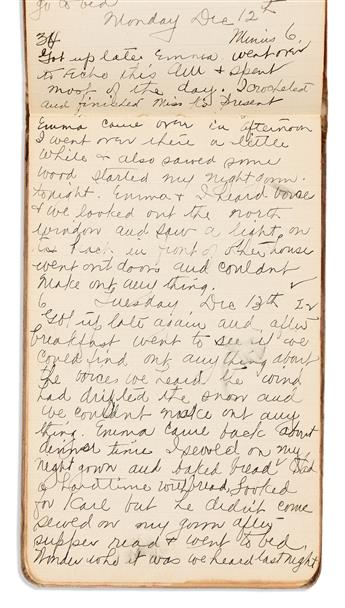 go to bed
Monday Dec 12th
34 Minus 6.
Got up late. Emma went over
to Echo this AM & spent
most of the day. I crocheted
and finished Miss B's present
Emma came over in afternoon
I went over there a little
while & also sawed some
wood started my night gown.
tonight. Emma & I heard voices
& we looked out the north
window and saw a light on
the back in front of other house
went out doors and couldnt
make out any thing.
6 Tuesday Dec 13th
Got up late again and after
breakfast went to see if we
could find out anything about
the voices we heard the wind
had drifted the snow and
we couldn't make out any
thing. Emma came back about
dinner time I sewed on my
night gown and baked bread Had
a hard time with bread, Looked
for Karl but he didn't come
sewed on my gown after
supper read & went to bed
Wonder who it was we heard last night